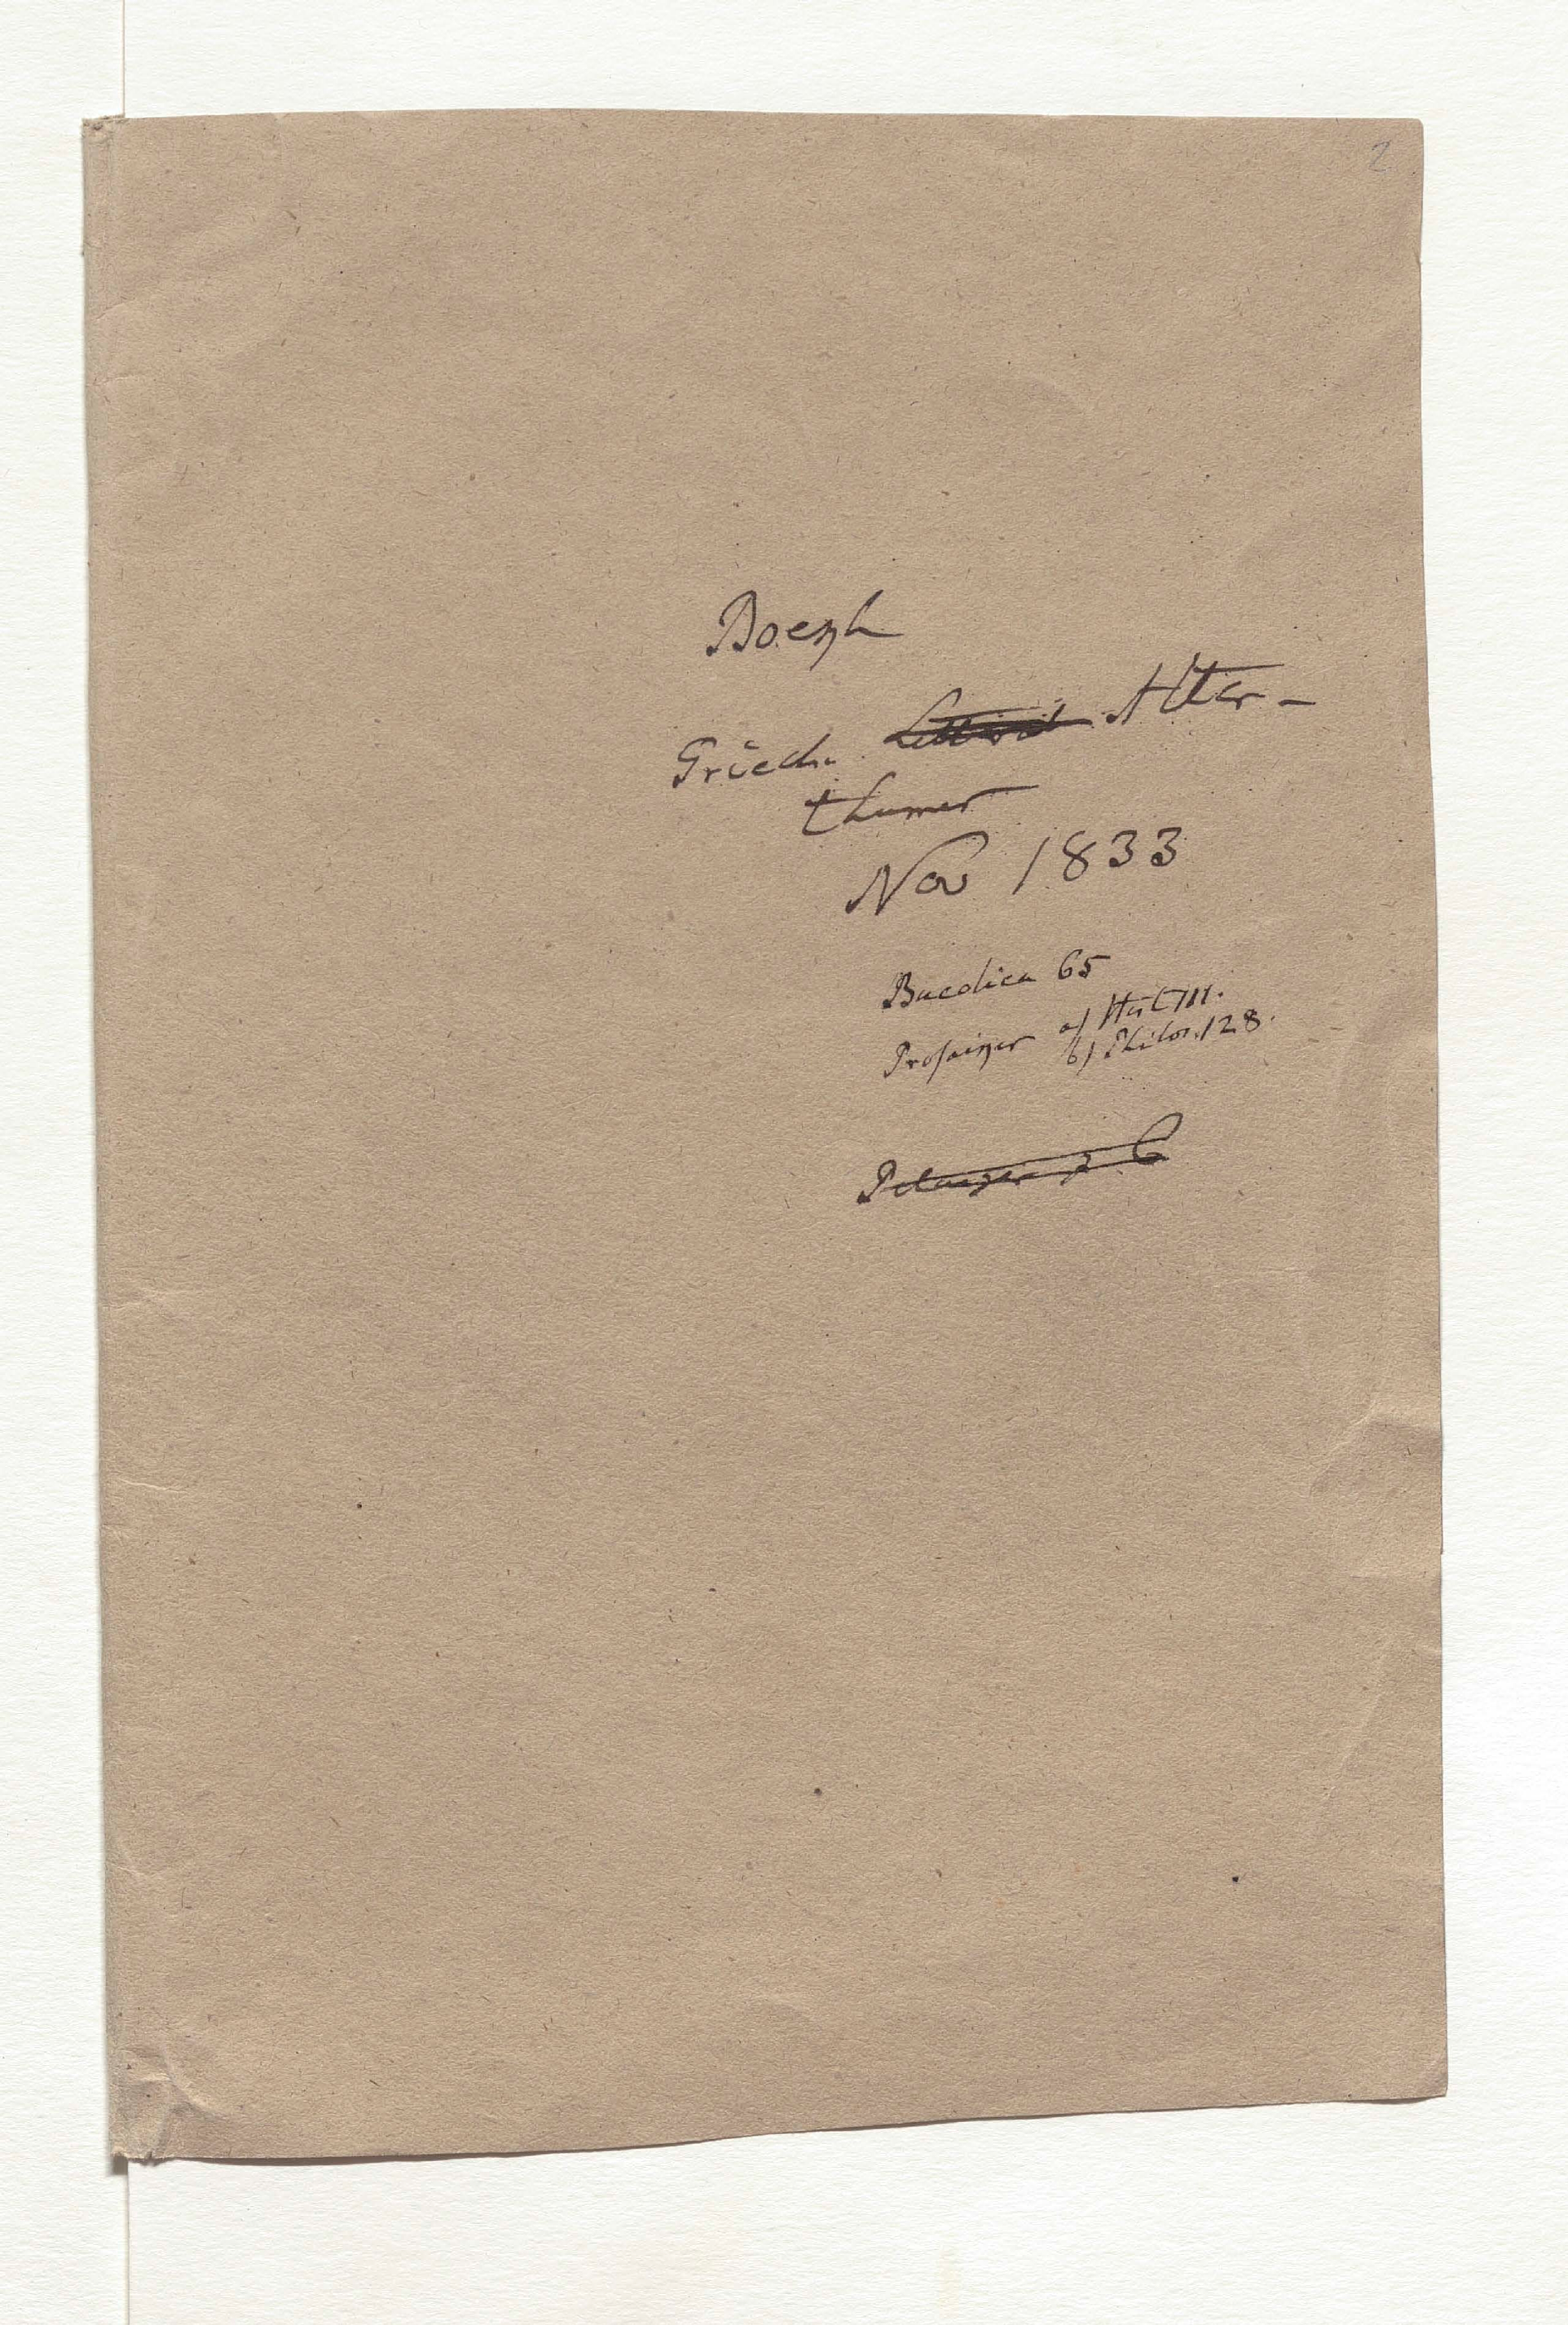 2
Boeckh
Griech. Litterat Alter-
thumer
Nov 1833
Bucolica 65
Prosaiker a) Hist 111.
b) Philos. 128.